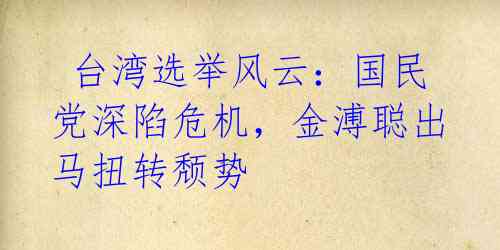 台湾选举风云：国民
党深陷危机，金溥聪出
马扭转颓势